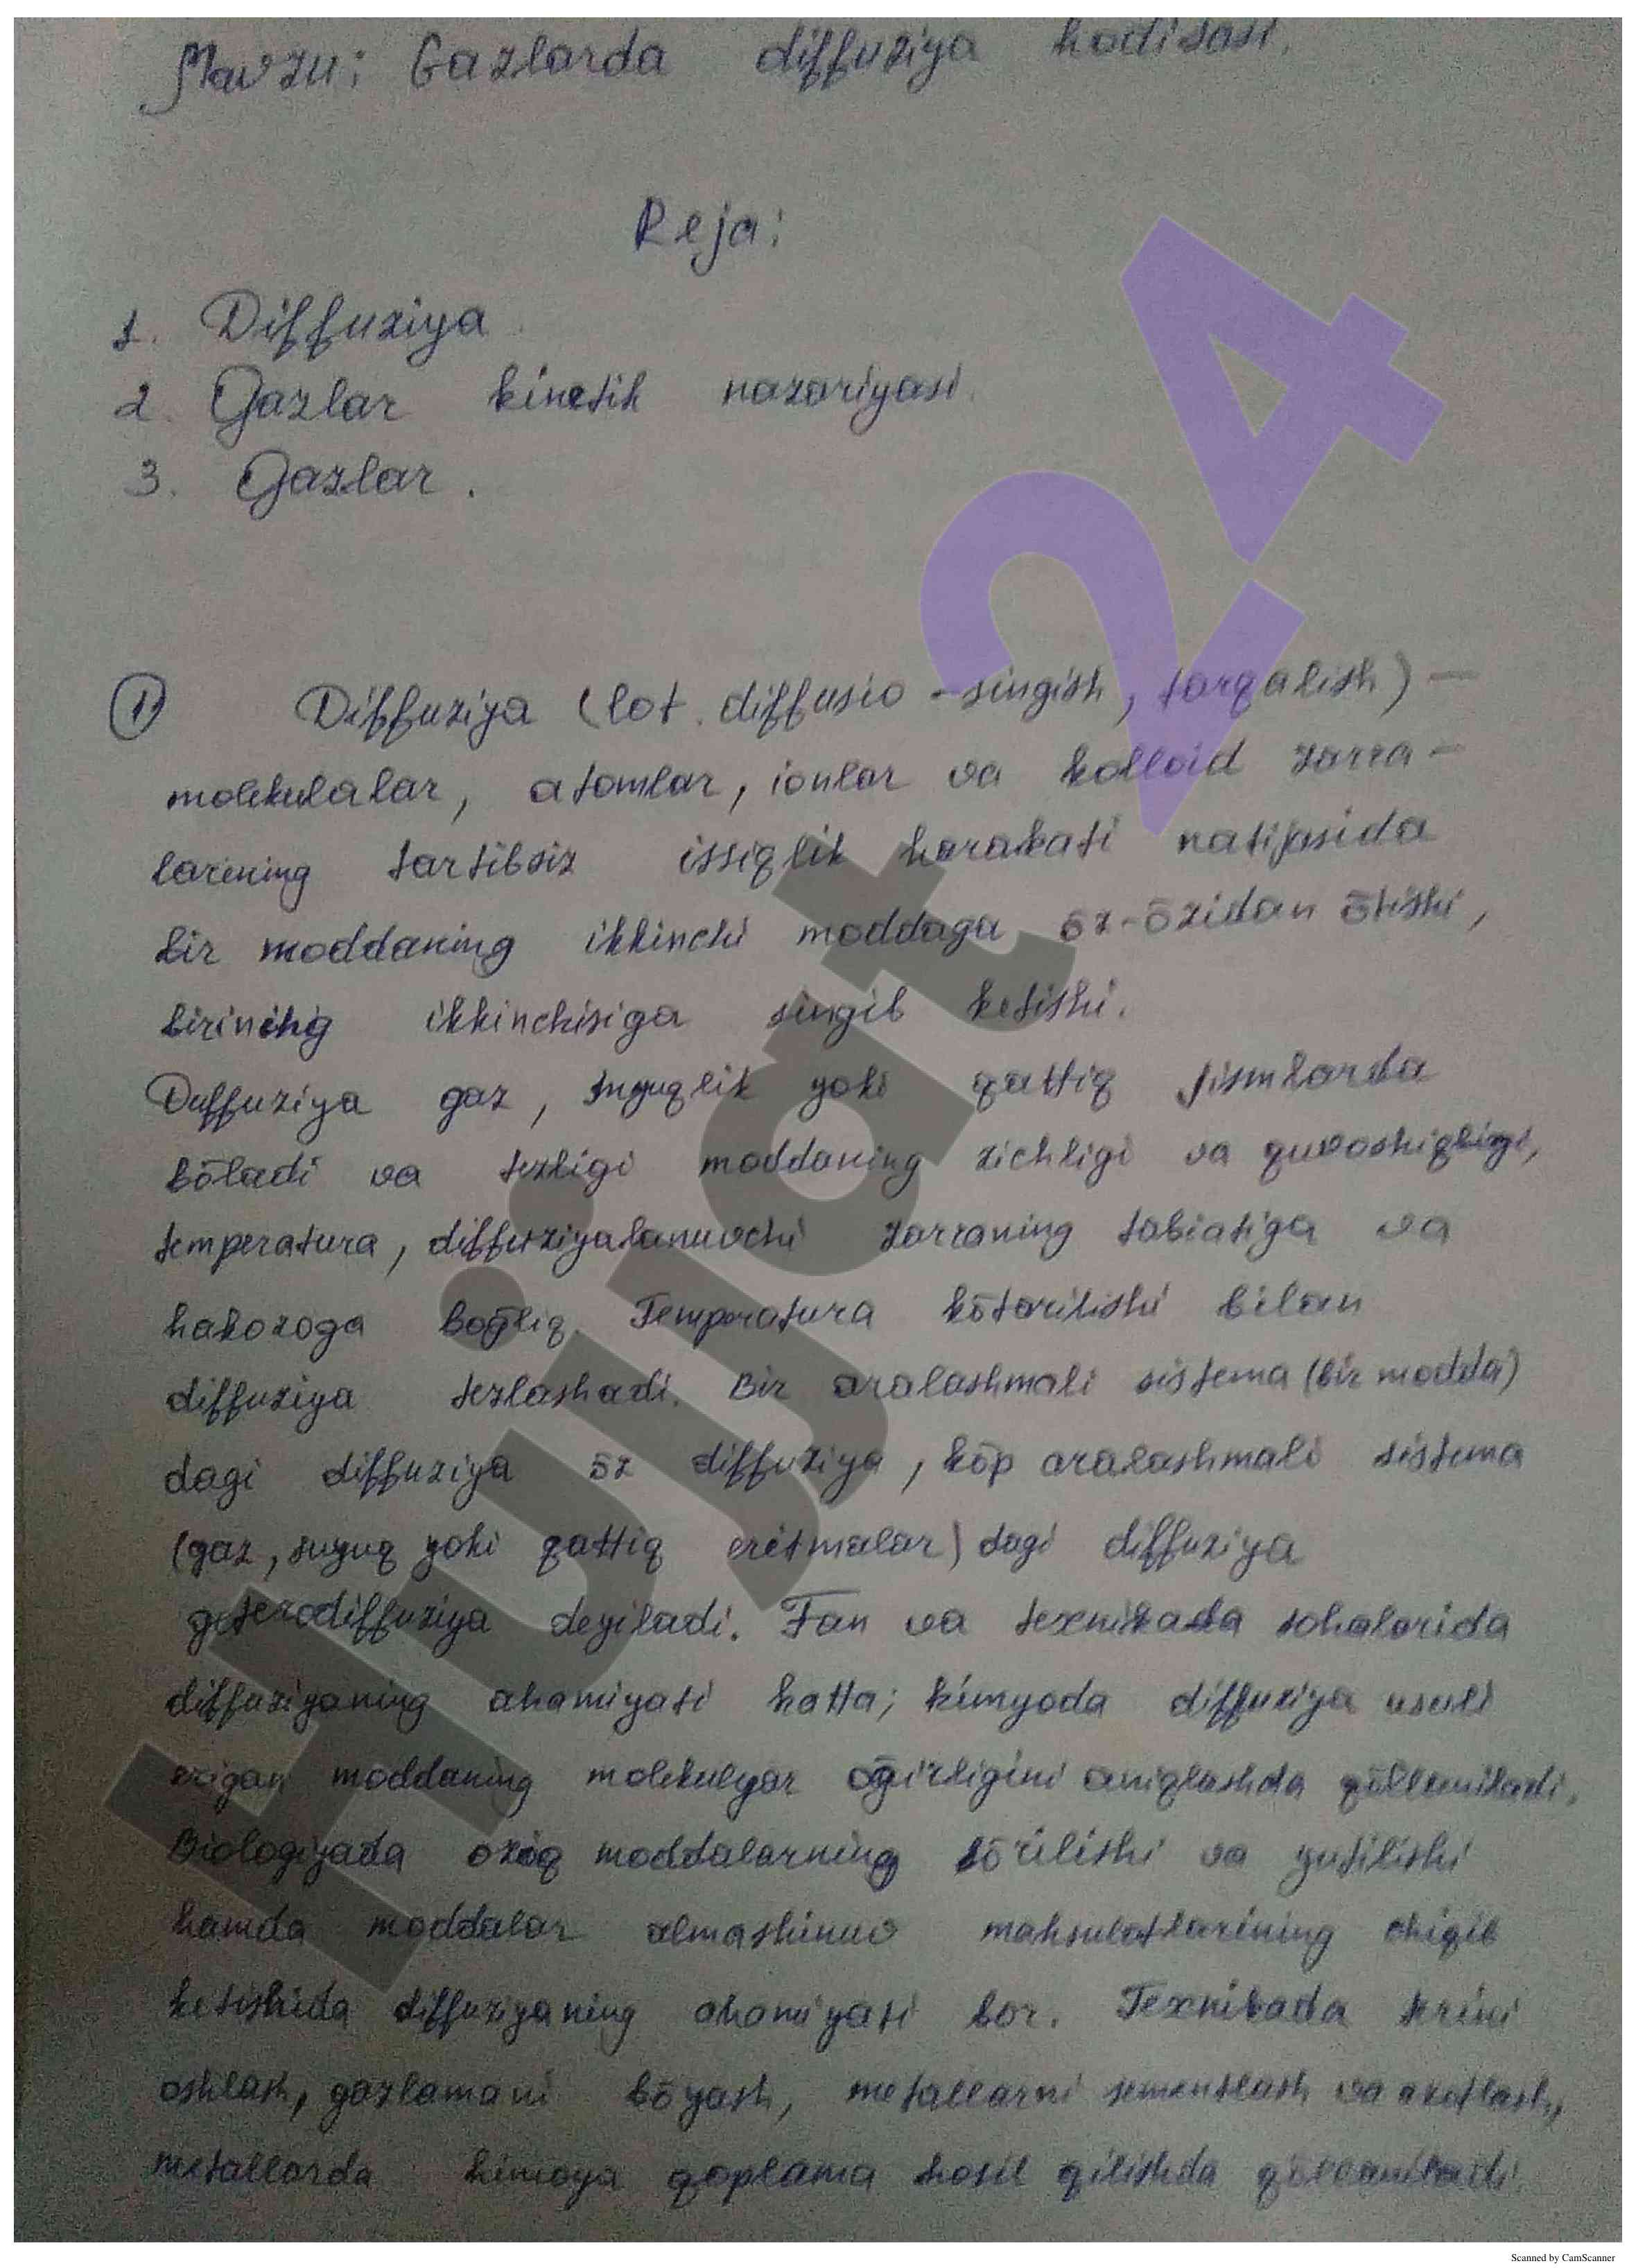 Mavzu: Gazlarda diffuziya hodisasi.
Reja:
1. Diffuziya
2. Gazlar kinetik nazariyasi.
3. Gazlar.
① Diffuziya (lot. diffusio - singish, tarqalish) –
molekulalar, atomlar, ionlar va kolloid zarra –
larining tartibsiz issiqlik harakati natijasida
bir moddaning ikkinchi moddaga ōz-ōzidan ōtishi,
birining ikkinchisiga singib ketishi.
Duffuziya gaz, suyuqlik yoki qattiq jismlarda
bōladi va tezligi moddaning zichligi va quvoshiqligi,
temperatura, diffuziyalanuvchi zarraning tabiatiga va
hakozoga boḡliq. Temperatura kōtarilishi bilan
diffuziya tezlashadi. Bir aralashmali sistema (bir modda)
dagi diffuziya ōz diffuziya, kōp aralashmali sistema
(gaz, suyuq yoki qattiq eritmalar) dagi diffuziya
geterodiffuziya deyiladi. Fan va texnikada sohalarida
diffuziyaning ahamiyati katta; kimyoda diffuziya usuli
erigan moddaning molekulyar oḡirligini aniqlashda qōllaniladi.
Biologiyada oziq moddalarning sōrilishi va yutilishi
hamda moddalar almashinuv mahsulotlarining chiqib
ketishida diffuziyaning ahamiyati bor. Texnikada terini
oshlash, gazlamani bōyash, metallarni sementlash va azotlash,
metallarda himoya qoplama hosil qilishda qōllaniladi.
Hujjat 24
Scanned by CamScanner